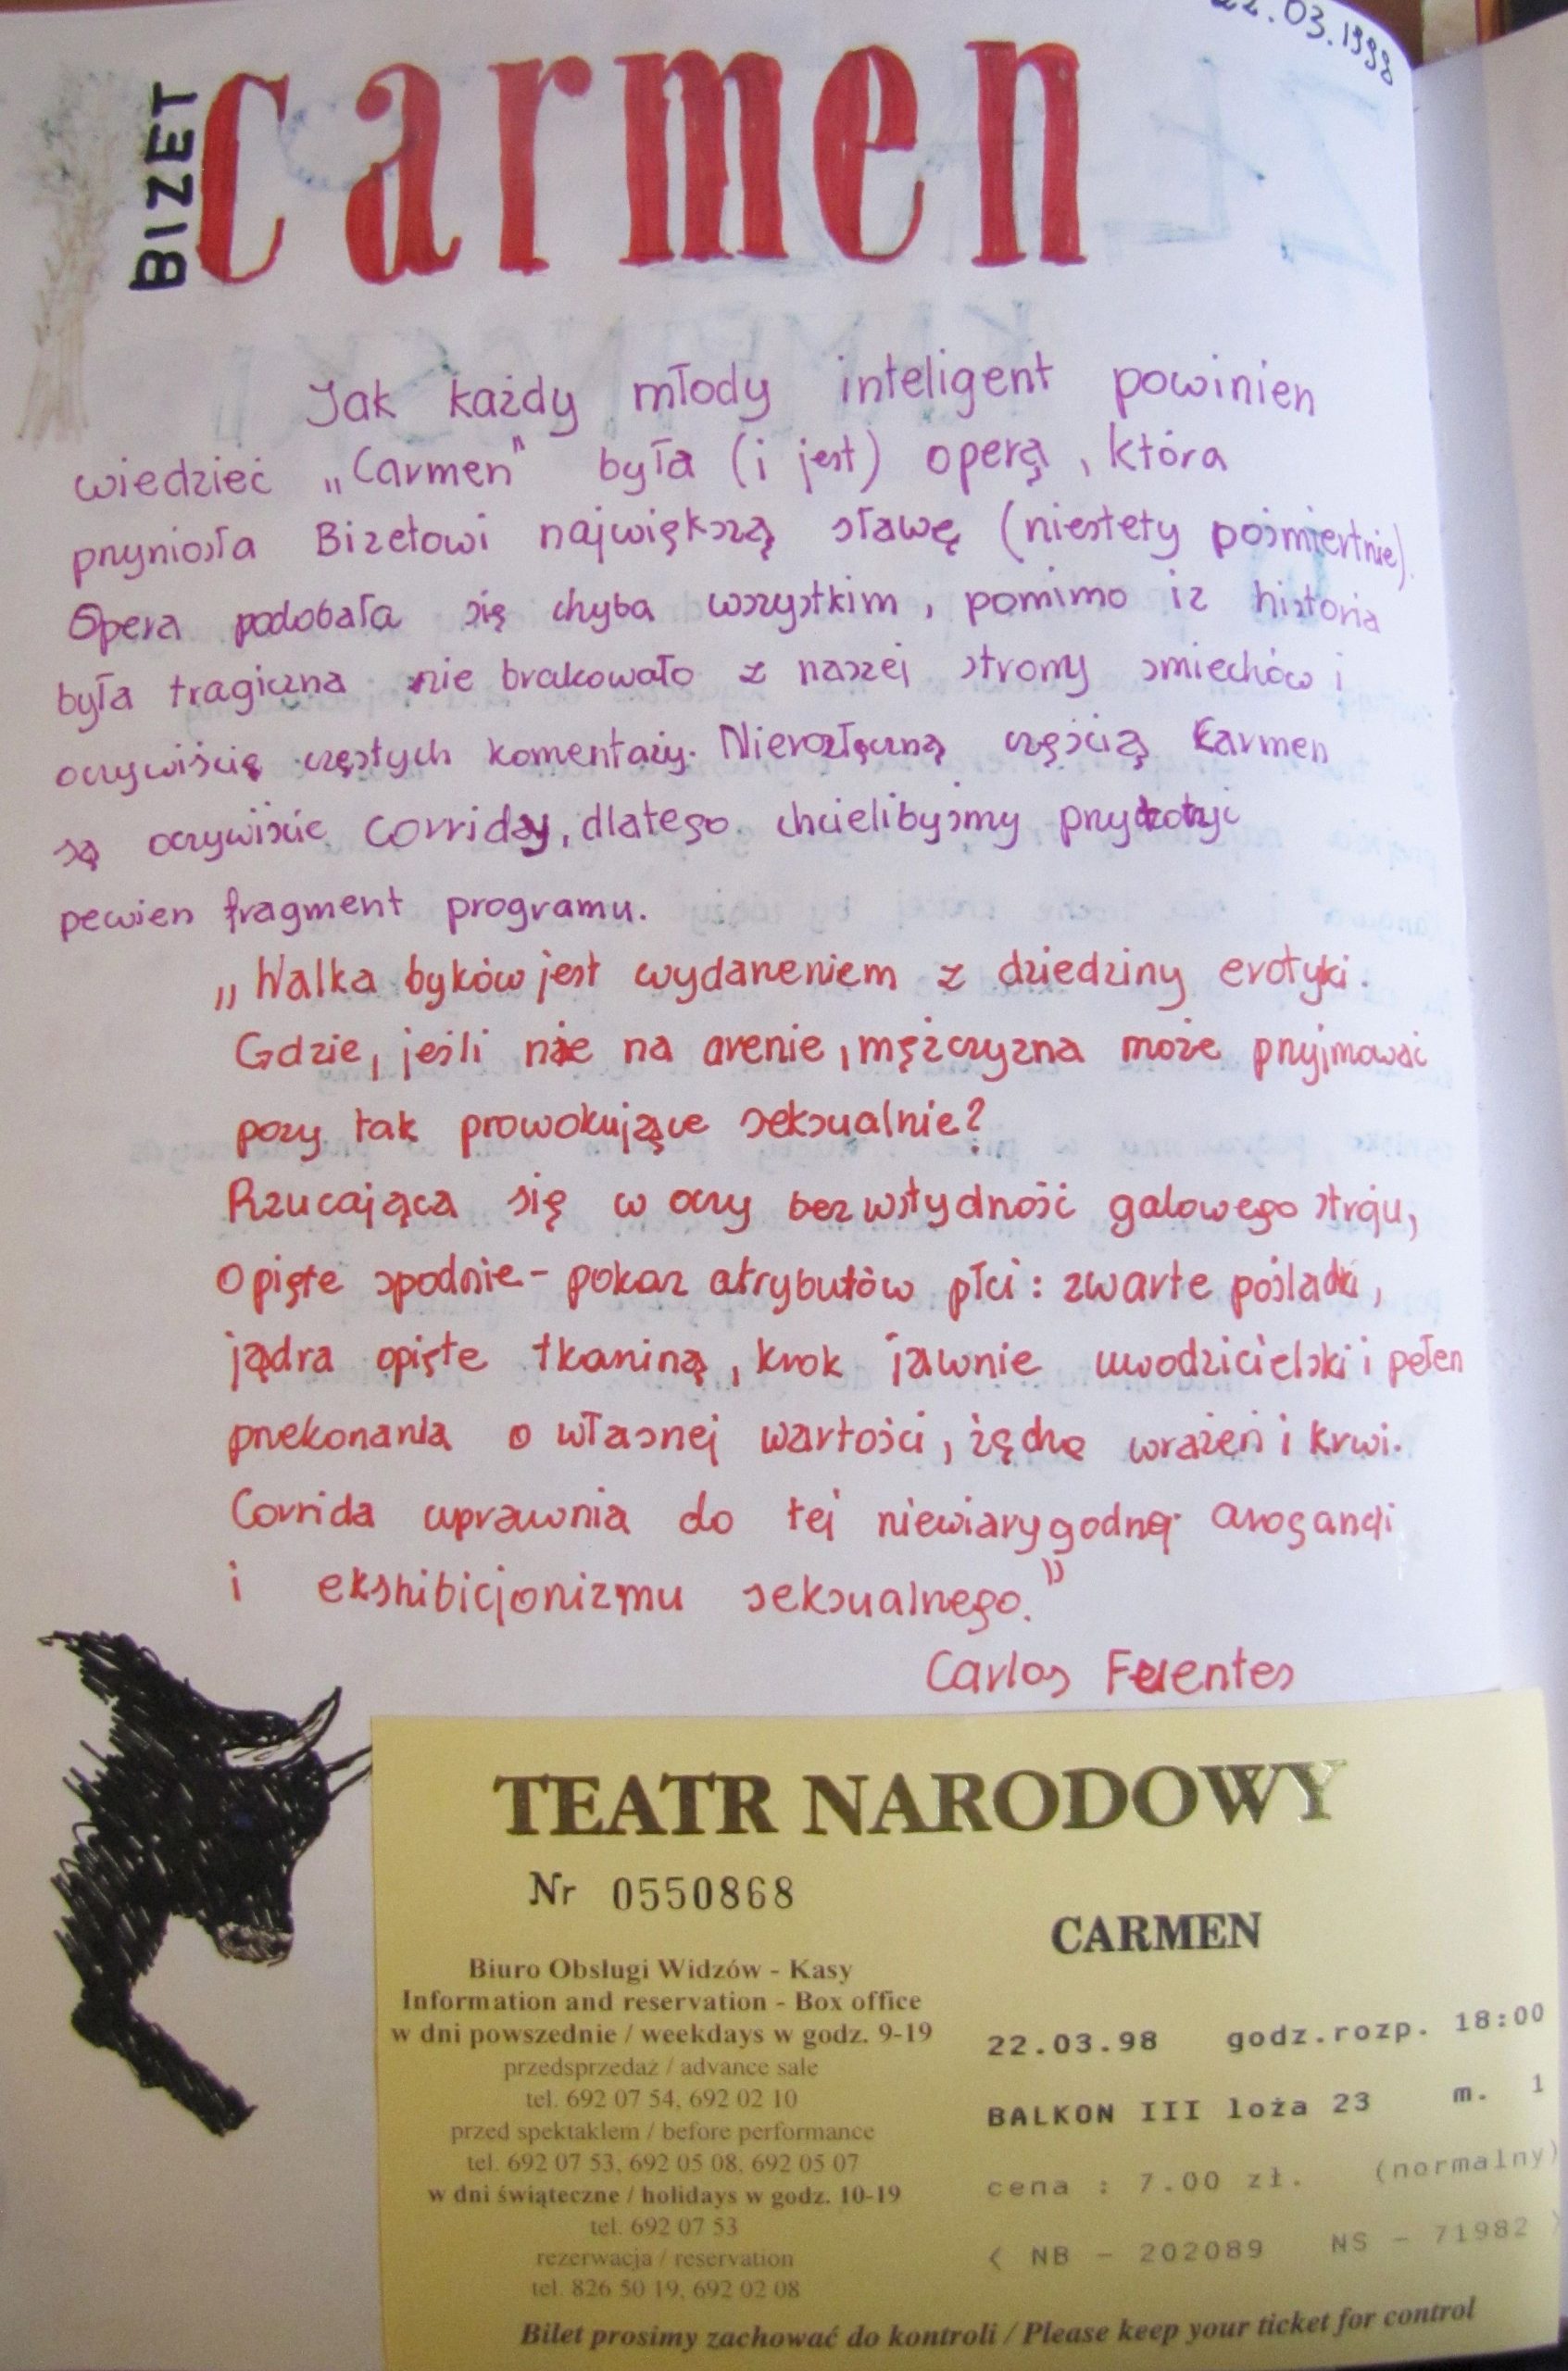 22.03.1998
BIZET
carmen
Jak każdy młody inteligent powinien
wiedzieć „Carmen" była (i jest) operą, która
przyniosła Bizetowi największą sławę (niestety pośmiertnie).
Opera podobała się chyba wszystkim, pomimo iż historia
była tragiczna nie brakowało z naszej strony śmiechów i
oczywiścię częstych komentaży. Nierozłączną częścią Carmen
są oczywiście corridy, dlatego chcielibyśmy przytoczyć
pewien fragment programu.
„Walka byków jest wydarzeniem z dziedziny erotyki.
Gdzie, jeśli nie na arenie, mężczyzna może przyjmować
pozy tak prowokujące seksualnie?
Rzucająca się w oczy bezwstydność galowego stroju,
opięte spodnie - pokaz atrybutów płci: zwarte pośladki,
jądra opięte tkaniną, krok jawnie uwodzicielski i pełen
przekonania o własnej wartości, żądne wrażeń i krwi.
Corrida uprawnia do tej niewiarygodnej arogancji
i ekshibicjonizmu seksualnego."
Carlos Fuentes
TEATR NARODOWY
Nr 0550868
CARMEN
Biuro Obsługi Widzów - Kasy
Information and reservation - Box office
w dni powszednie / weekdays w godz. 9-19
przedsprzedaż / advance sale
tel. 692 07 54, 692 02 10
przed spektaklem / before performance
tel. 692 07 53, 692 05 08, 692 05 07
w dni świąteczne / holidays w godz. 10-19
tel. 692 07 53
rezerwacja / reservation
tel. 826 50 19, 692 02 08
22.03.98 godz.rozp. 18:00
BALKON III loża 23 m. 1
cena : 7.00 zł. (normalny)
( NB - 202089 NS - 71982 )
Bilet prosimy zachować do kontroli / Please keep your ticket for control